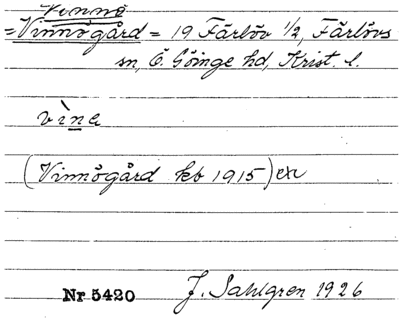 Vennö
=Vinnögård = 19 Färlöv 1/2, Färlövs
sn, Ö. Göinge hd, Krist. l.
vìnə
(Vinnögård kb 1915) ex
Nr 5420 J. Sahlgren 1926